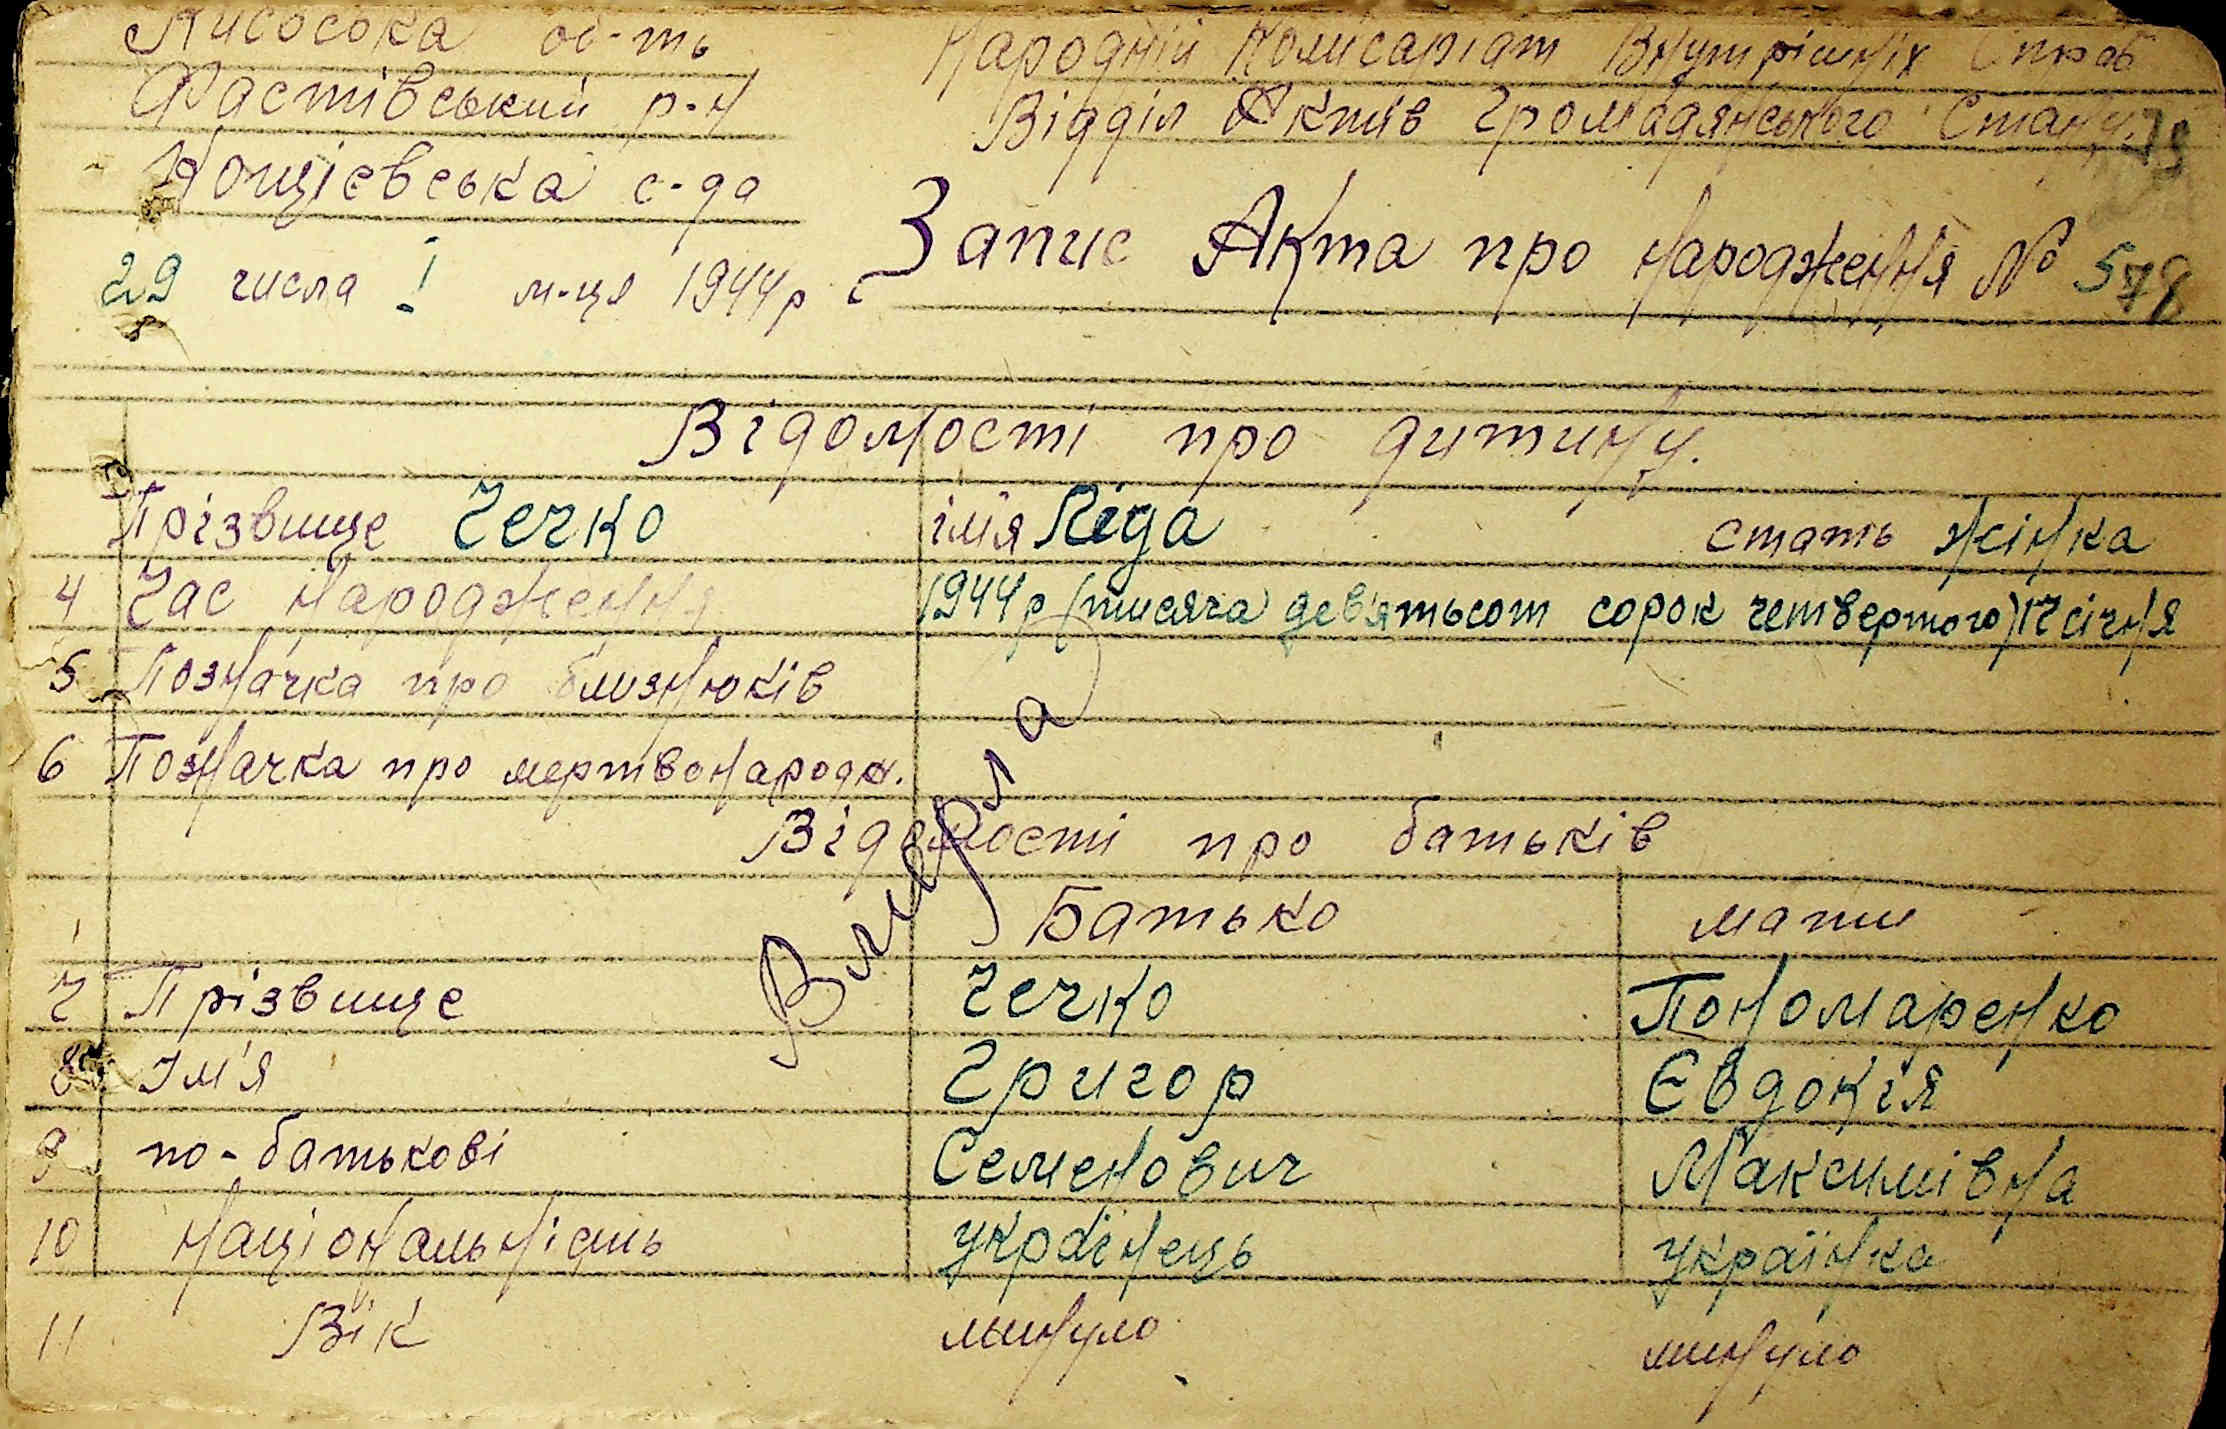 об-ть
Фастівський р-н
Кощіевська с-да
29 числа I м-ця 1944 р
Народній Комисаріат Внутрішніх Справ
Відділ Актів Громадянського Стану
Запис Акта про народження № 5
Відомості про дитину.
Прізвище Чечко імя Ліда стать жінка
4 Час народження 1944 р (тисяча дев'ятьсот сорок четвертого) 17 січня
5 Позначка про близнюків
6 Позначка про мертвонародж.
Вимерла
Відомості про батьків
Батько мати
7 Прізвище Чечко Пономаренко
8 Ім'я Григор Євдокія
9 по-батькові Семенович Максимівна
10 Національність українець українка
11 Вік минуло минуло